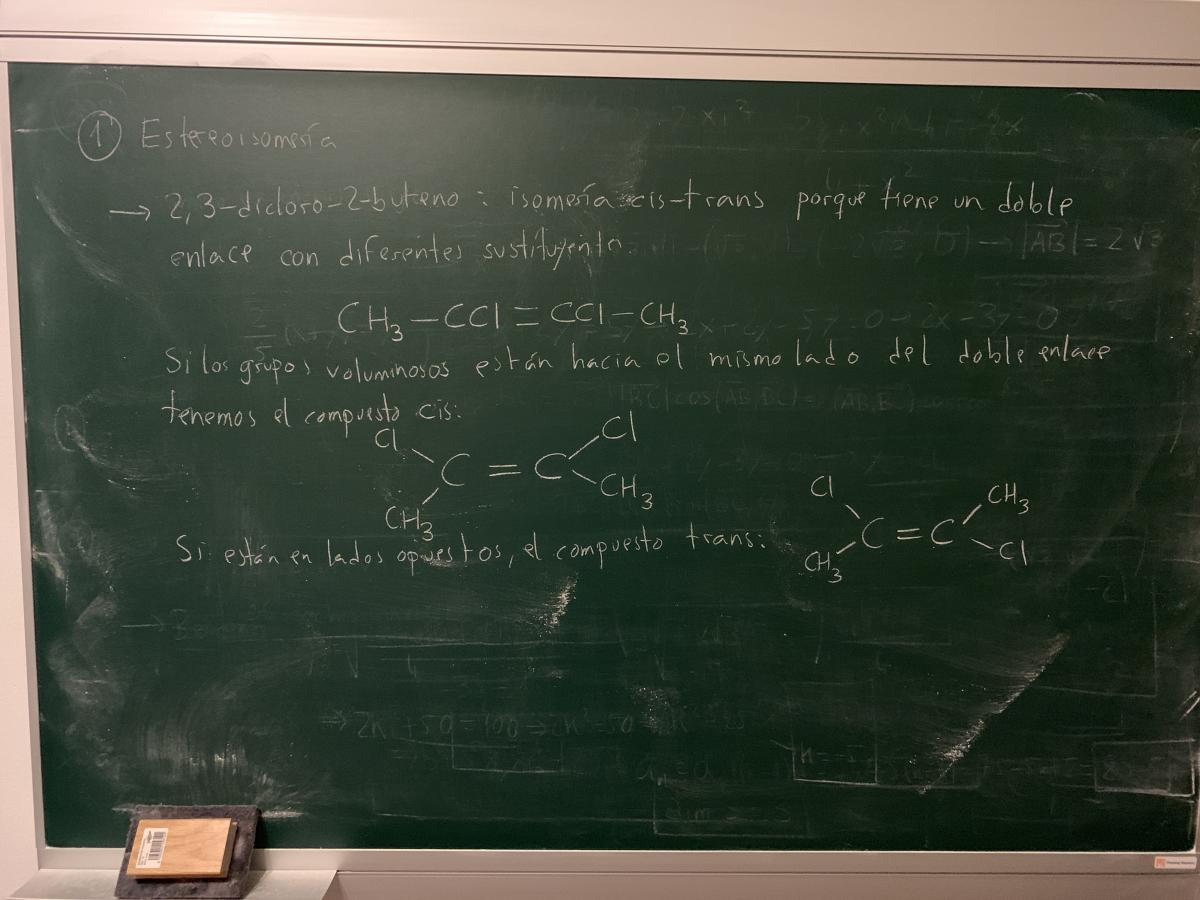 1 Estereoisomería
→ 2,3-dicloro-2-buteno : isomería cis-trans porque tiene un doble
enlace con diferentes sustituyento.
CH3 — CCl = CCl — CH3
Si los grupos voluminosos están hacia el mismo lado del doble enlace
tenemos el compuesto cis:
Cl Cl
C = C
CH3 CH3
Si están en lados opuestos, el compuesto trans:
Cl CH3
C = C
CH3 Cl
|AB| = 2√3